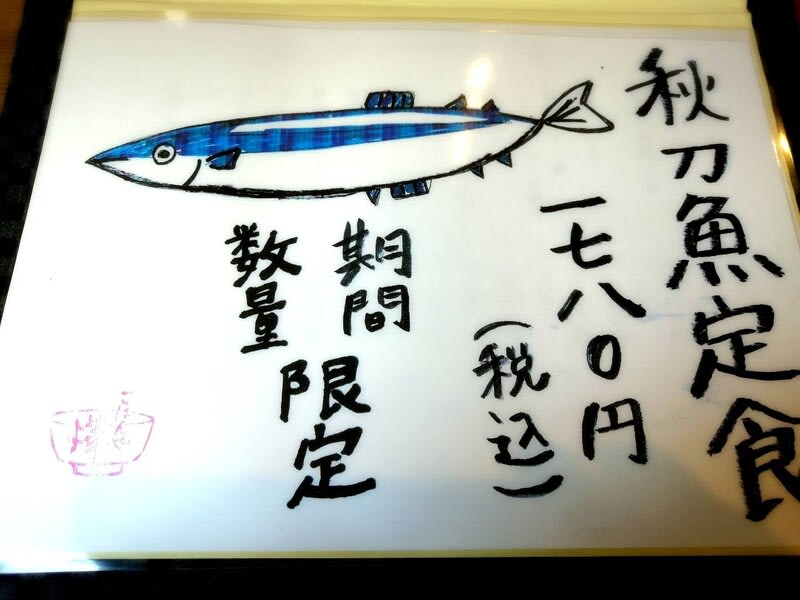 秋刀魚定食
一七八〇円
(税込)
期間
数量
限定